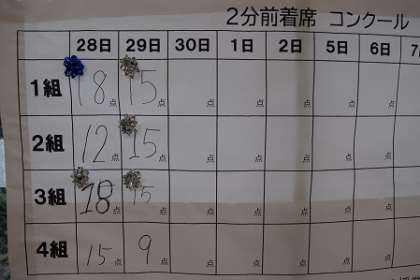 2分前着席 コンクール
28日 29日 30日 1日 2日 5日 6日
1組 18点 15点 点 点 点 点 点
2組 12点 15点 点 点 点 点 点
3組 18点 15点 点 点 点 点 点
4組 15点 9点 点 点 点 点 点